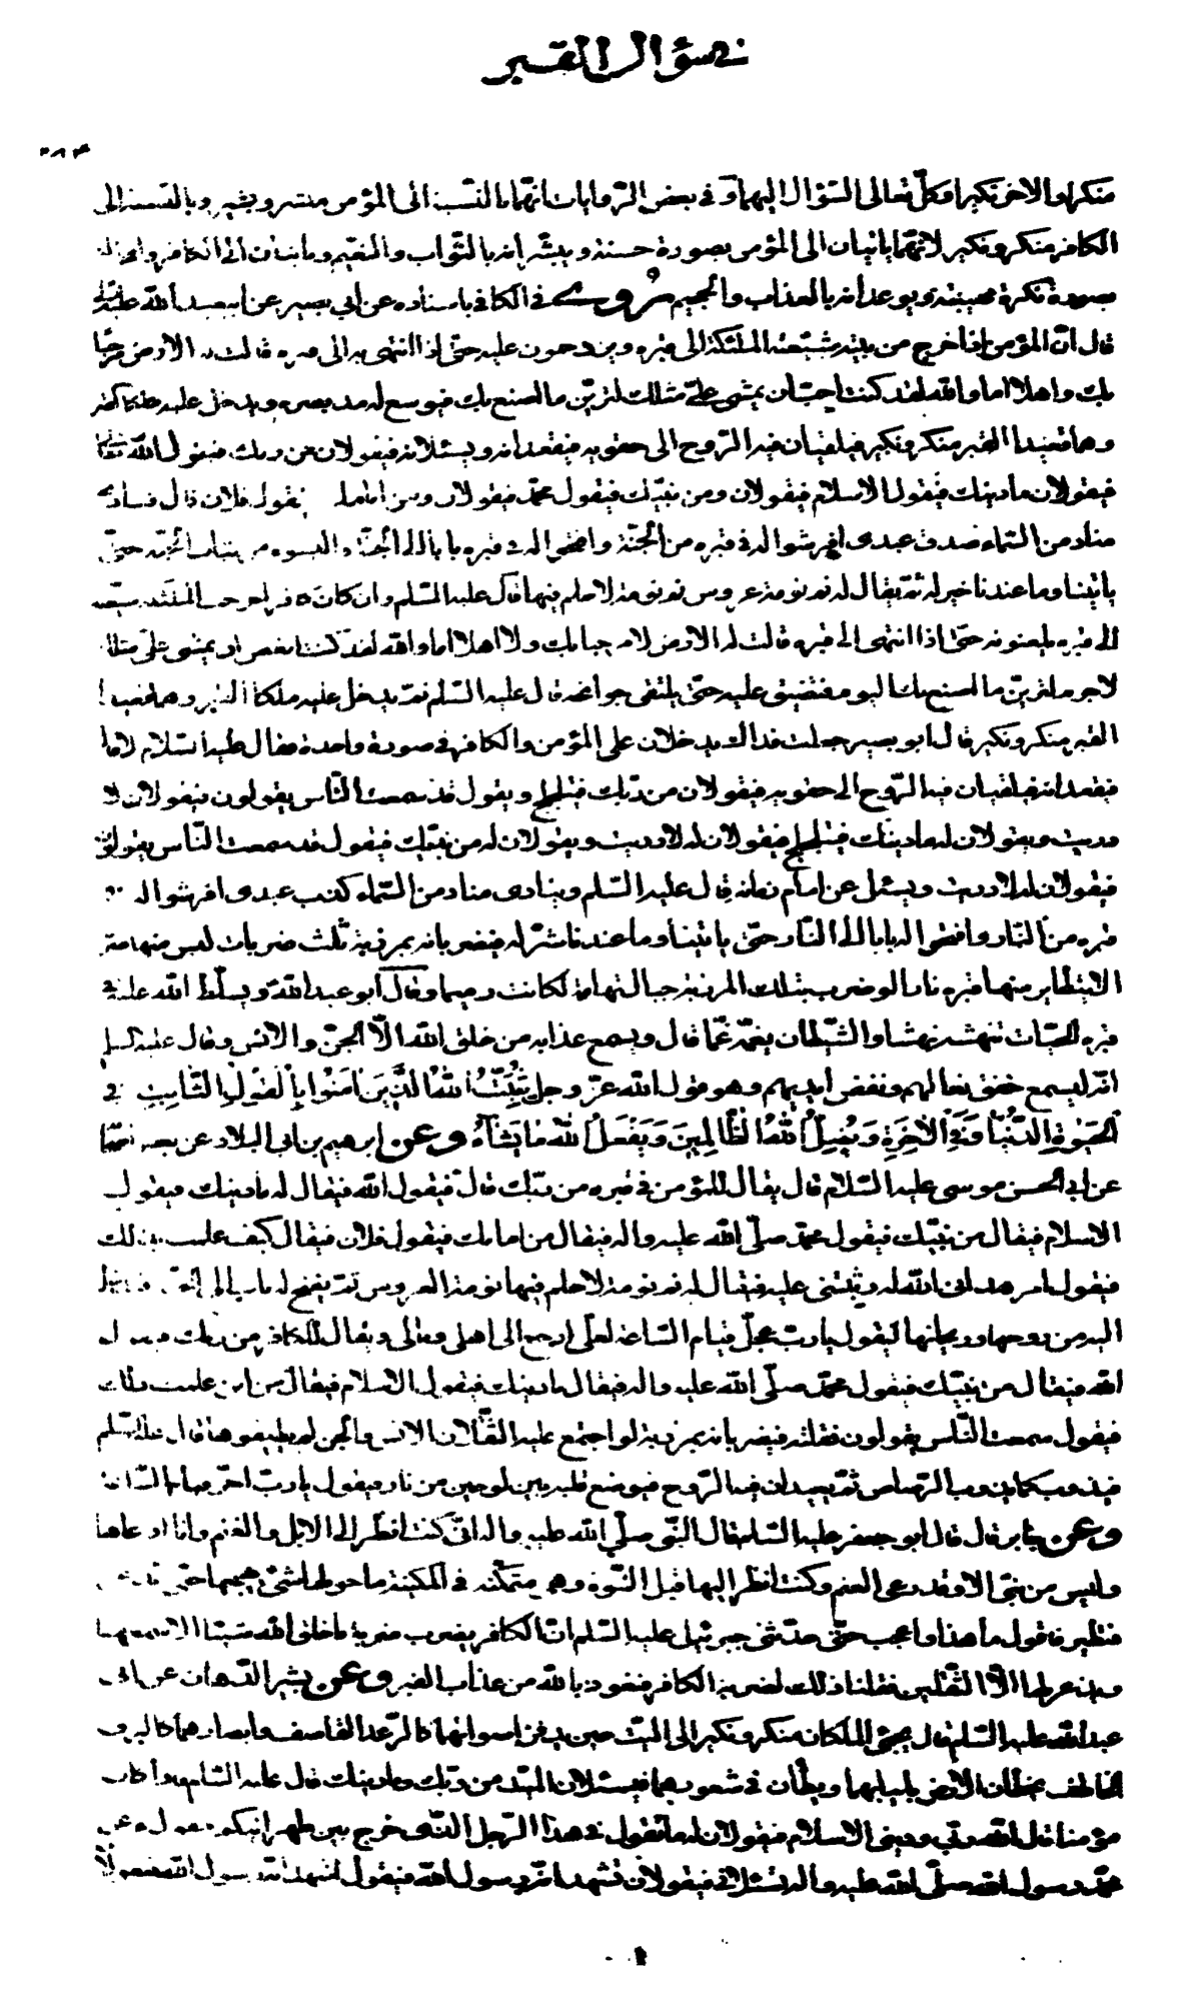 في سؤال القبر
منكرا والاخر نكيرا وكل تعالى السؤال اليهما وفي بعض الروايات انهما بالنسبة الى المؤمن مبشر وبشير وبالنسبة الى
الكافر منكر ونكير لانهما ياتيان الى المؤمن بصورة حسنة ويبشرانه بالثواب والنعيم وياتيان الى الكافر
بصورة نكرة مهيبة ويوعدانه بالعذاب والجحيم روى في الكافي باسناده عن ابي بصير عن ابي عبد الله عليه السلم
قال ان المؤمن اذا خرج من بيته شيعته الملئكة الى قبره ويزدحمون عليه حتى اذا انتهى به الى قبره قالت له الارض مرحبا
بك واهلا اما والله لقد كنت احب ان يمشي علي مثلك لترين ما اصنع بك فيوسع له مد بصره ويدخل عليه ملكا القبر
وهما قعيدا القبر منكر ونكير فيلقيان فيه الروح الى حقويه فيقعدانه ويسئلانه فيقولان من ربك فيقول الله تعالى
فيقولان ما دينك فيقول الاسلام فيقولان ومن نبيك فيقول محمد فيقولان ومن امامك فيقول فلان قال فينادي
مناد من السماء صدق عبدي افرشوا له في قبره من الجنة وافتحوا له في قبره بابا الى الجنة والبسوه من ثياب الجنة حتى
ياتينا وما عندنا خير له ثم يقال له نم نومة عروس نم نومة لا حلم فيها قال عليه السلم وان كان كافرا خرجت الملئكة تشيعه
الى قبره يلعنونه حتى اذا انتهى الى قبره قالت له الارض لا مرحبا بك ولا اهلا اما والله لقد كنت ابغض ان يمشي علي مثلك
لا جرم لترين ما اصنع بك اليوم فتضيق عليه حتى يلتقي جوانحه قال عليه السلم ثم يدخل عليه ملكا القبر وهما قعيدا
القبر منكر ونكير قال ابو بصير جعلت فداك يدخلان على المؤمن والكافر في صورة واحدة فقال عليه السلام لا قال
فيقعدانه فيلقيان فيه الروح الى حقويه فيقولان من ربك فيتلجلج ويقول قد سمعت الناس يقولون فيقولان لا
دريت ويقولان له ما دينك فيتلجلج فيقولان له لا دريت ويقولان له من نبيك فيقول قد سمعت الناس يقولون
فيقولان له لا دريت ويسئل عن امام زمانه قال عليه السلم وينادي مناد من السماء كذب عبدي افرشوا له في
قبره من النار وافتحوا له بابا الى النار حتى ياتينا وما عندنا شر له فيضربانه بمرزبة ثلث ضربات ليس منها ضربة
الا يتطاير منها قبره نارا لو ضرب بتلك المرزبة جبال تهامة لكانت رميما وقال ابو عبد الله ويسلط الله عليه في
قبره الحيات تنهشه نهشا والشيطان يغمه غما قال ويسمع عذابه من خلق الله الا الجن والانس وقال عليه السلم
انه ليسمع خفق نعالهم ونفض ايديهم وهو قول الله عز وجل يُثَبِّتُ اللهُ الَّذِينَ آمَنُوا بِالْقَوْلِ الثَّابِتِ فِي
الْحَيٰوةِ الدُّنْيَا وَفِي الْآخِرَةِ وَيُضِلُّ اللهُ الظَّالِمِينَ وَيَفْعَلُ اللهُ مَا يَشَاءُ وعن ابرهيم بن ابي البلاد عن بعض اصحابه
عن ابي الحسن موسى عليه السلام قال يقال للمؤمن في قبره من ربك قال فيقول الله فيقال له ما دينك فيقول
الاسلام فيقال من نبيك فيقول محمد صلى الله عليه واله فيقال من امامك فيقول فلان فيقال كيف علمت بذلك
فيقول امر هداني الله له وثبتني عليه فيقال له نم نومة لا حلم فيها نومة العروس ثم يفتح له باب الى الجنة فيدخل
اليه من روحها وريحانها فيقول يا رب عجل قيام الساعة لعلي ارجع الى اهلي ومالي ويقال للكافر من ربك فيقول
الله فيقال من نبيك فيقول محمد صلى الله عليه واله فيقال ما دينك فيقول الاسلام فيقال من اين علمت ذلك
فيقول سمعت الناس يقولون فقلته فيضربانه بمرزبة لو اجتمع عليه الثقلان الانس والجن لم يطيقوها قال عليه السلم
فيذوب كما يذوب الرصاص ثم يعيدان فيه الروح فيوضع قلبه بين لوحين من نار فيقول يا رب اخر قيام الساعة
وعن جابر قال قال ابو جعفر عليه السلم قال النبي صلى الله عليه واله اني كنت انظر الى الابل والغنم وانا ارعاها
وليس من نبي الا وقد رعى الغنم وكنت انظر اليها قبل النبوة وهي متمكنة في المكينة ما حولها شئ يهيجها حتى
فتطير فاقول ما هذا واعجب حتى حدثني جبرئيل عليه السلم ان الكافر يضرب ضربة ما خلق الله شيئا الا سمعها
ويذعر لها الا الثقلين فقلنا ذلك لضربة الكافر فنعوذ بالله من عذاب القبر وعن بشير الدهان عن ابي
عبد الله عليه السلم قال يجئ الملكان منكر ونكير الى الميت حين يدفن اصواتهما كالرعد القاصف وابصارهما كالبرق
الخاطف يخطان الارض بانيابهما ويطأن في شعورهما فيسئلان الميت من ربك وما دينك قال عليه السلام فاذا كان
مؤمنا قال الله ربي وديني الاسلام فيقولان له ما تقول في هذا الرجل الذي خرج بين ظهرانيكم فيقول اعن
محمد رسول الله صلى الله عليه واله تسئلاني فيقولان تشهد انه رسول الله فيقول اشهد انه رسول الله فيقولان